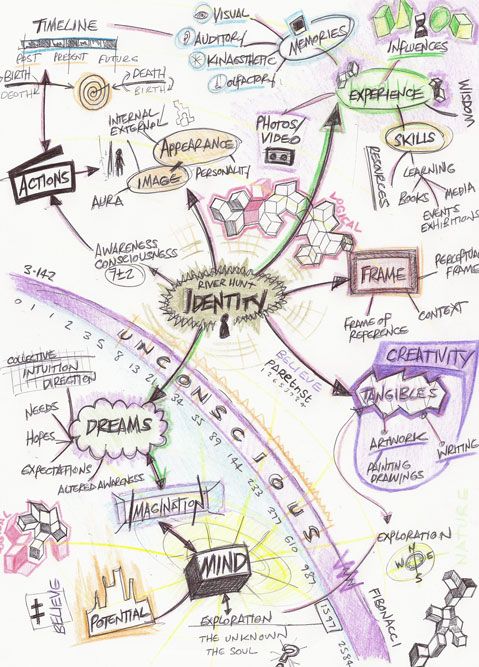 TIMELINE
PAST PRESENT FUTURE
BIRTH
DEATH
DEATH
BIRTH
VISUAL
AUDITORY
KINAESTHETIC
OLFACTORY
MEMORIES
INFLUENCES
EXPERIENCE
WISDOM
SKILLS
RESOURCES
LEARNING
BOOKS
MEDIA
EVENTS
EXHIBITIONS
PHOTOS/
VIDEO
INTERNAL/
EXTERNAL
APPEARANCE
IMAGE
PERSONALITY
AURA
ACTIONS
LOGICAL
AWARENESS
CONSCIOUSNESS
7±2
RIVER HUNT
IDENTITY
FRAME
PERCEPTUAL
FRAME
FRAME OF
REFERENCE
CONTEXT
3.142
0 1 1 2 3 5 8 13 21 34 55 89 144 233 377 610 987 1597 2584
UNCONSCIOUS
BELIEVE
CREATIVITY
TANGIBLES
ARTWORK
WRITING
PAINTING
DRAWINGS
COLLECTIVE
INTUITION
DIRECTION
NEEDS
HOPES
EXPECTATIONS
DREAMS
ALTERED AWARENESS
IMAGINATION
MIND
POTENTIAL
BELIEVING
EXPLORATION
THE UNKNOWN
THE SOUL
?
EXPLORATION
N
W E
S
NATURE
FIBONACCI